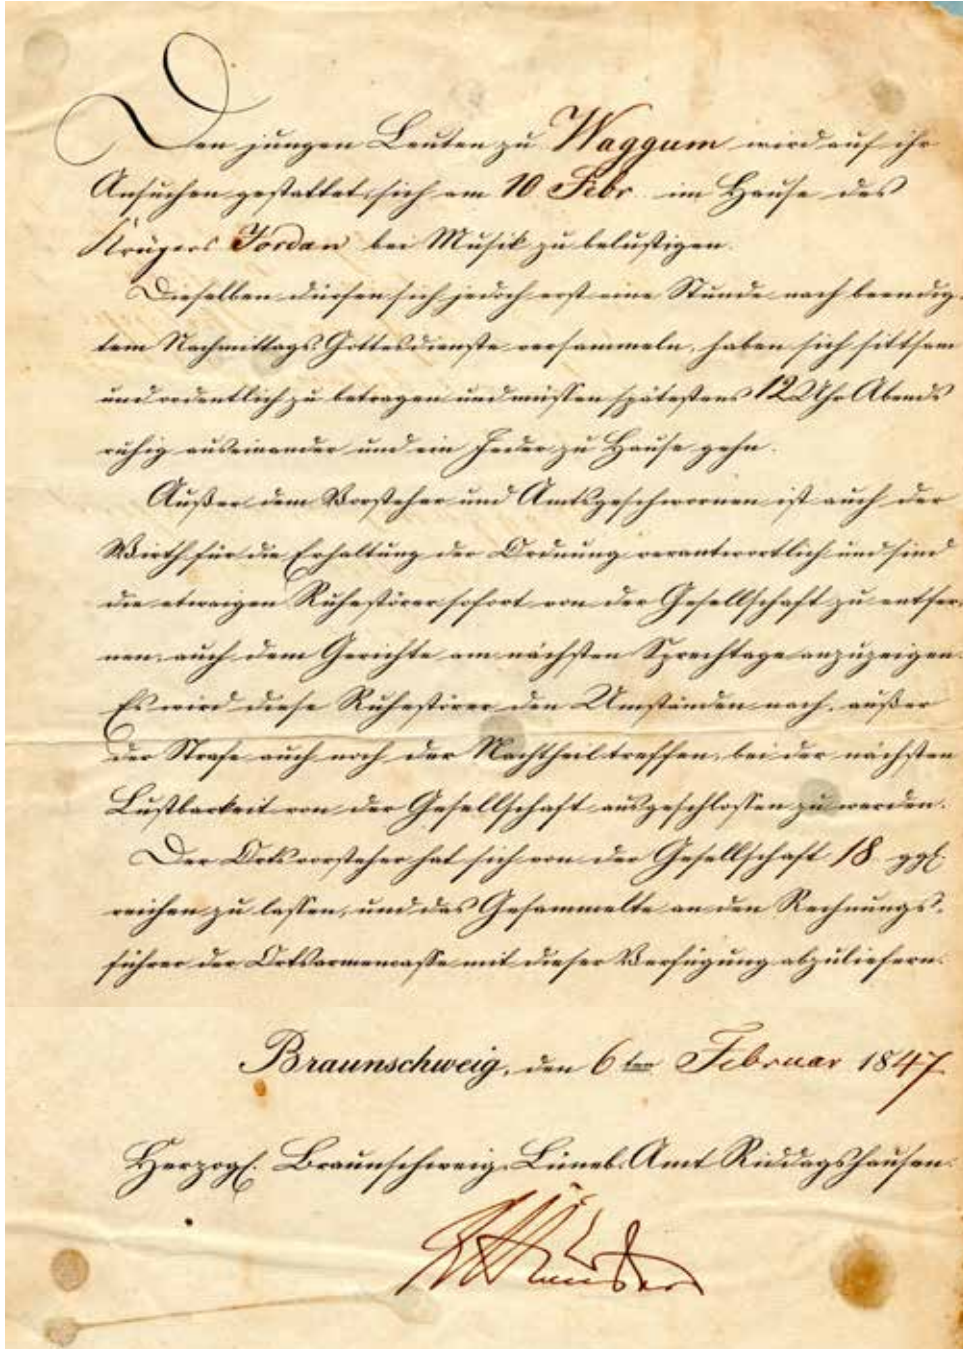 Den jungen Leuten zu Waggum wird auf ihr
Ansuchen gestattet, sich am 10 Febr. im Hause des
Krügers Jordan bei Musik zu belustigen.
Dieselben dürfen sich jedoch erst eine Stunde nach beendig-
tem Nachmittags-Gottesdienste versammeln, haben sich sittsam
und ordentlich zu betragen und müssen spätestens 12 Uhr Abends
ruhig auseinander und ein Jeder zu Hause gehn.
Außer dem Vorsteher und Amtsgeschwornen ist auch der
Wirth für die Erhaltung der Ordnung verantwortlich und sind
die etwaigen Ruhestörer sofort von der Gesellschaft zu entfer-
nen, auch dem Gerichte am nächsten Sprechtage anzuzeigen.
Es wird diese Ruhestörer den Umständen nach, außer
der Strafe auch noch der Nachtheil treffen, bei der nächsten
Lustbarkeit von der Gesellschaft ausgeschlossen zu werden.
Der Ortsvorsteher hat sich von der Gesellschaft 18 ggl.
reichen zu lassen, und das Gesammelte an den Rechnungs-
führer der Ortsarmencasse mit dieser Verfügung abzuliefern.
Braunschweig, den 6ten Februar 1847
Herzogl. Braunschweig. Lüneb. Amt Riddagshausen.